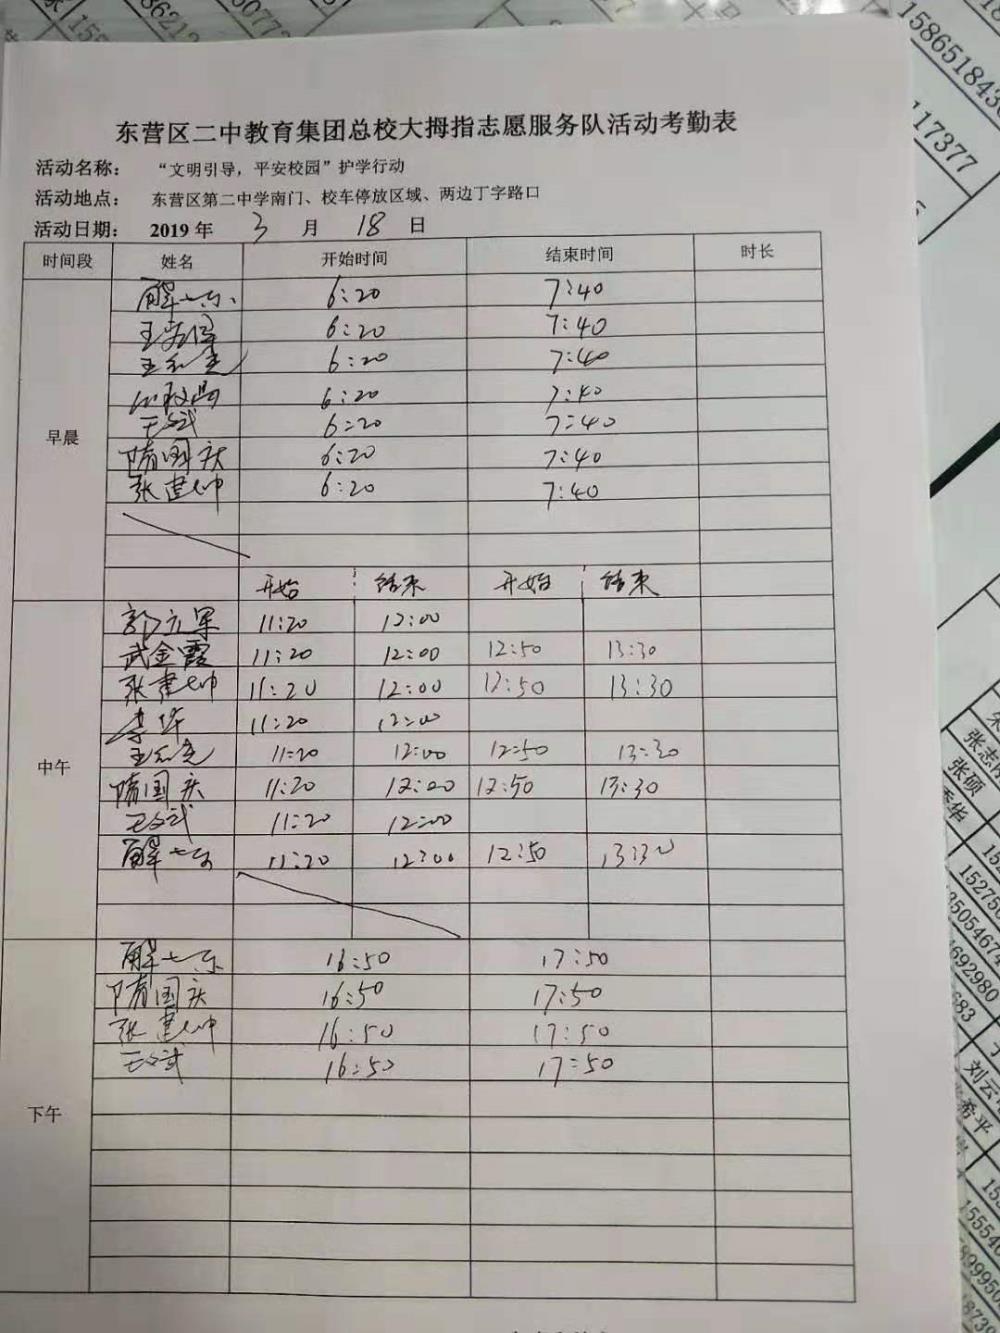 东营区二中教育集团总校大拇指志愿服务队活动考勤表
活动名称： “文明引导，平安校园”护学行动
活动地点： 东营区第二中学南门、校车停放区域、两边丁字路口
活动日期： 2019 年 3 月 18 日
时间段 姓名 开始时间 结束时间 时长
早晨
解 6:20 7:40
王 6:20 7:40
王 6:20 7:40
6:20 7:40
王文武 6:20 7:40
隋国庆 6:20 7:40
张建坤 6:20 7:40
开始 结束 开始 结束
中午
郭立军 11:20 12:00
武金霞 11:20 12:00 12:50 13:30
张建坤 11:20 12:00 12:50 13:30
李华 11:20 12:00
王 11:20 12:00 12:50 13:30
隋国庆 11:20 12:00 12:50 13:30
王文武 11:20 12:00
解 11:20 12:00 12:50 13:30
下午
解 16:50 17:50
隋国庆 16:50 17:50
张建坤 16:50 17:50
王文武 16:50 17:50
158651843
117377
张硕
秀华
刘云
希平